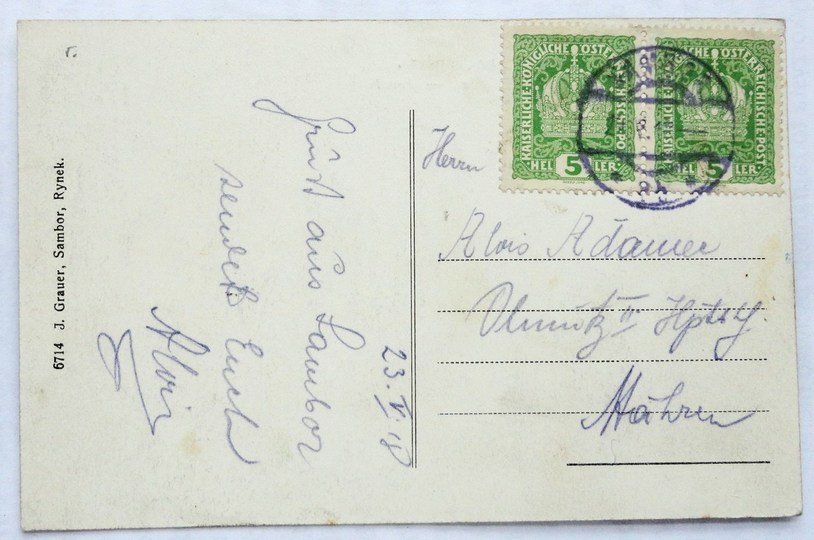 6714 J. Grauer, Sambor, Rynek.
Gruß aus Sambor
sendet Euch
Alois
23. V. 18
KAISERLICHE KÖNIGLICHE ÖSTERREICHISCHE POST
HELLER
5
KAISERLICHE KÖNIGLICHE ÖSTERREICHISCHE POST
HELLER
5
Herrn
Alois Adamer
Olmütz III
Mähren